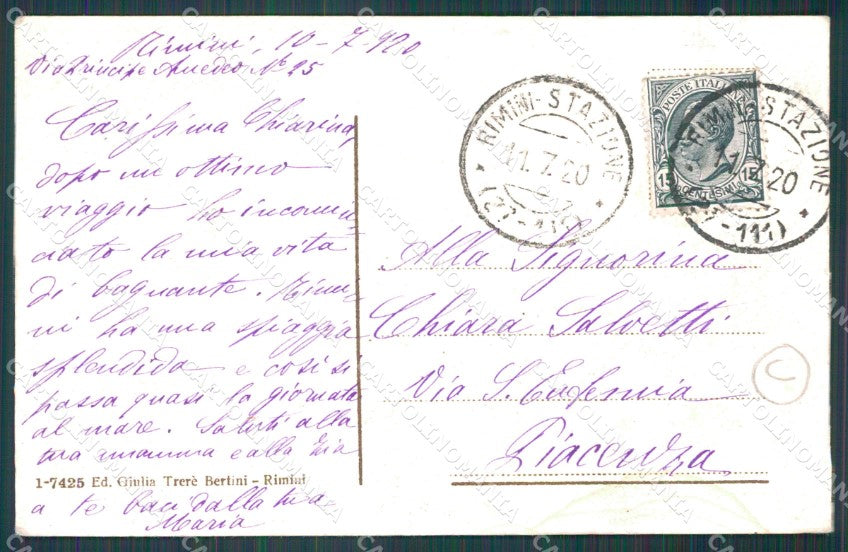 Rimini, 10-7-920
Via Principe Amedeo, No 25
Carissima Chiarina,
dopo un ottimo
viaggio ho incomin
ciato la mia vita
di bagnante. Rimi-
ni ha una spiaggia
splendida e così si
passa quasi la giornata
al mare. Saluti alla
tua mamma e alla zia
1-7425 Ed. Giulia Trerè Bertini - Rimini
a te baci dalla tua
Maria
RIMINI-STAZIONE
11.7.20
POSTE ITALIANE
15 15
CENTESIMI
RIMINI-STAZIONE
11.7.20
-111)
Alla Signorina
Chiara Salvetti
Via S. Eufemia
Piacenza
CARTOLINOMANIA